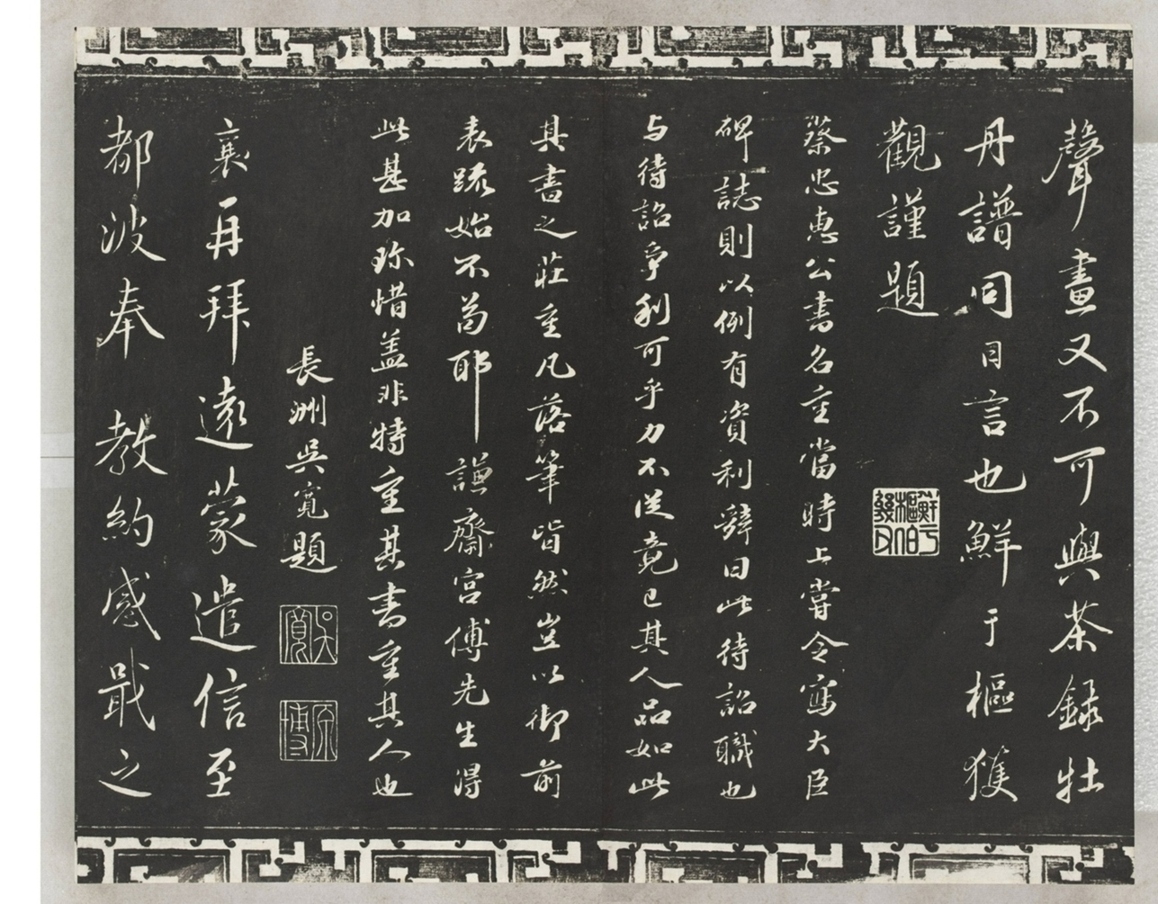 聲畫又不可與茶録牡
丹譜同日言也鮮于樞獲
觀謹題
鮮于樞伯幾父
蔡忠惠公書名重當時上嘗令寫大臣
碑誌則以例有資利辭曰此待詔職也
与待詔争利可乎力不從竟已其人品如此
其書之莊重凡落筆皆然豈以御前
表疏始不苟耶謙齋宫傅先生得
此甚加珎惜盖非特重其書重其人也
長洲吳寬題
吳寬
原博
襄再拜遠蒙遣信至
都波奉教約感戢之